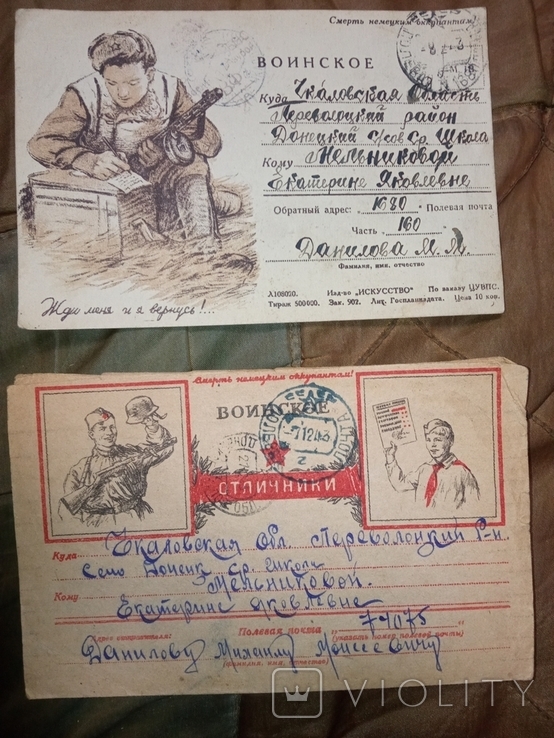 Смерть немецким оккупантам!
ВОИНСКОЕ
Куда Чкаловская область
Переволоцкий район
Донецкий с/сов Ср. Школа
Кому Мельниковой
Екатерине Яковлевне
Обратный адрес: 1680 Полевая почта
Часть 160
Данилова М. М.
Фамилия, имя, отчество
Л108020. Изд-во „ИСКУССТВО" По заказу ЦУВПС.
Тираж 500000. Зак. 902. Лит. Госпланиздата. Цена 10 коп.
Жди меня и я вернусь!...
Смерть немецким оккупантам!
ВОИНСКОЕ
7 12 43
ОТЛИЧНИКИ
Куда Чкаловская Обл. Переволоцкий Р-н.
Село Донецк Ср. школа
Мельниковой.
Кому Екатерине Яковлевне
77075
Адрес отправителя: Полевая почта (указать номер полевой почты)
Данилову Михаилу Моисеевичу
(фамилия, имя, отчество)
VIOLITY